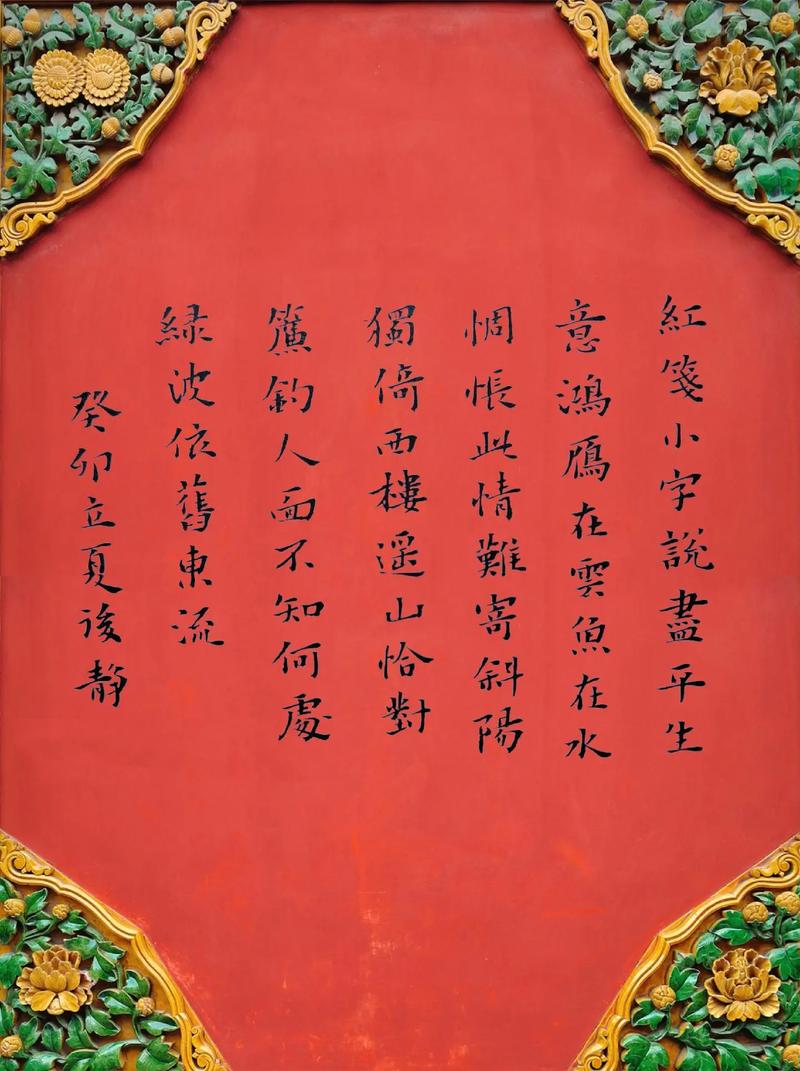 紅箋小字說盡平生
意鴻鴈在雲魚在水
惆悵此情難寄斜陽
獨倚西樓遥山恰對
簾鈎人面不知何處
緑波依舊東流
癸卯立夏後靜